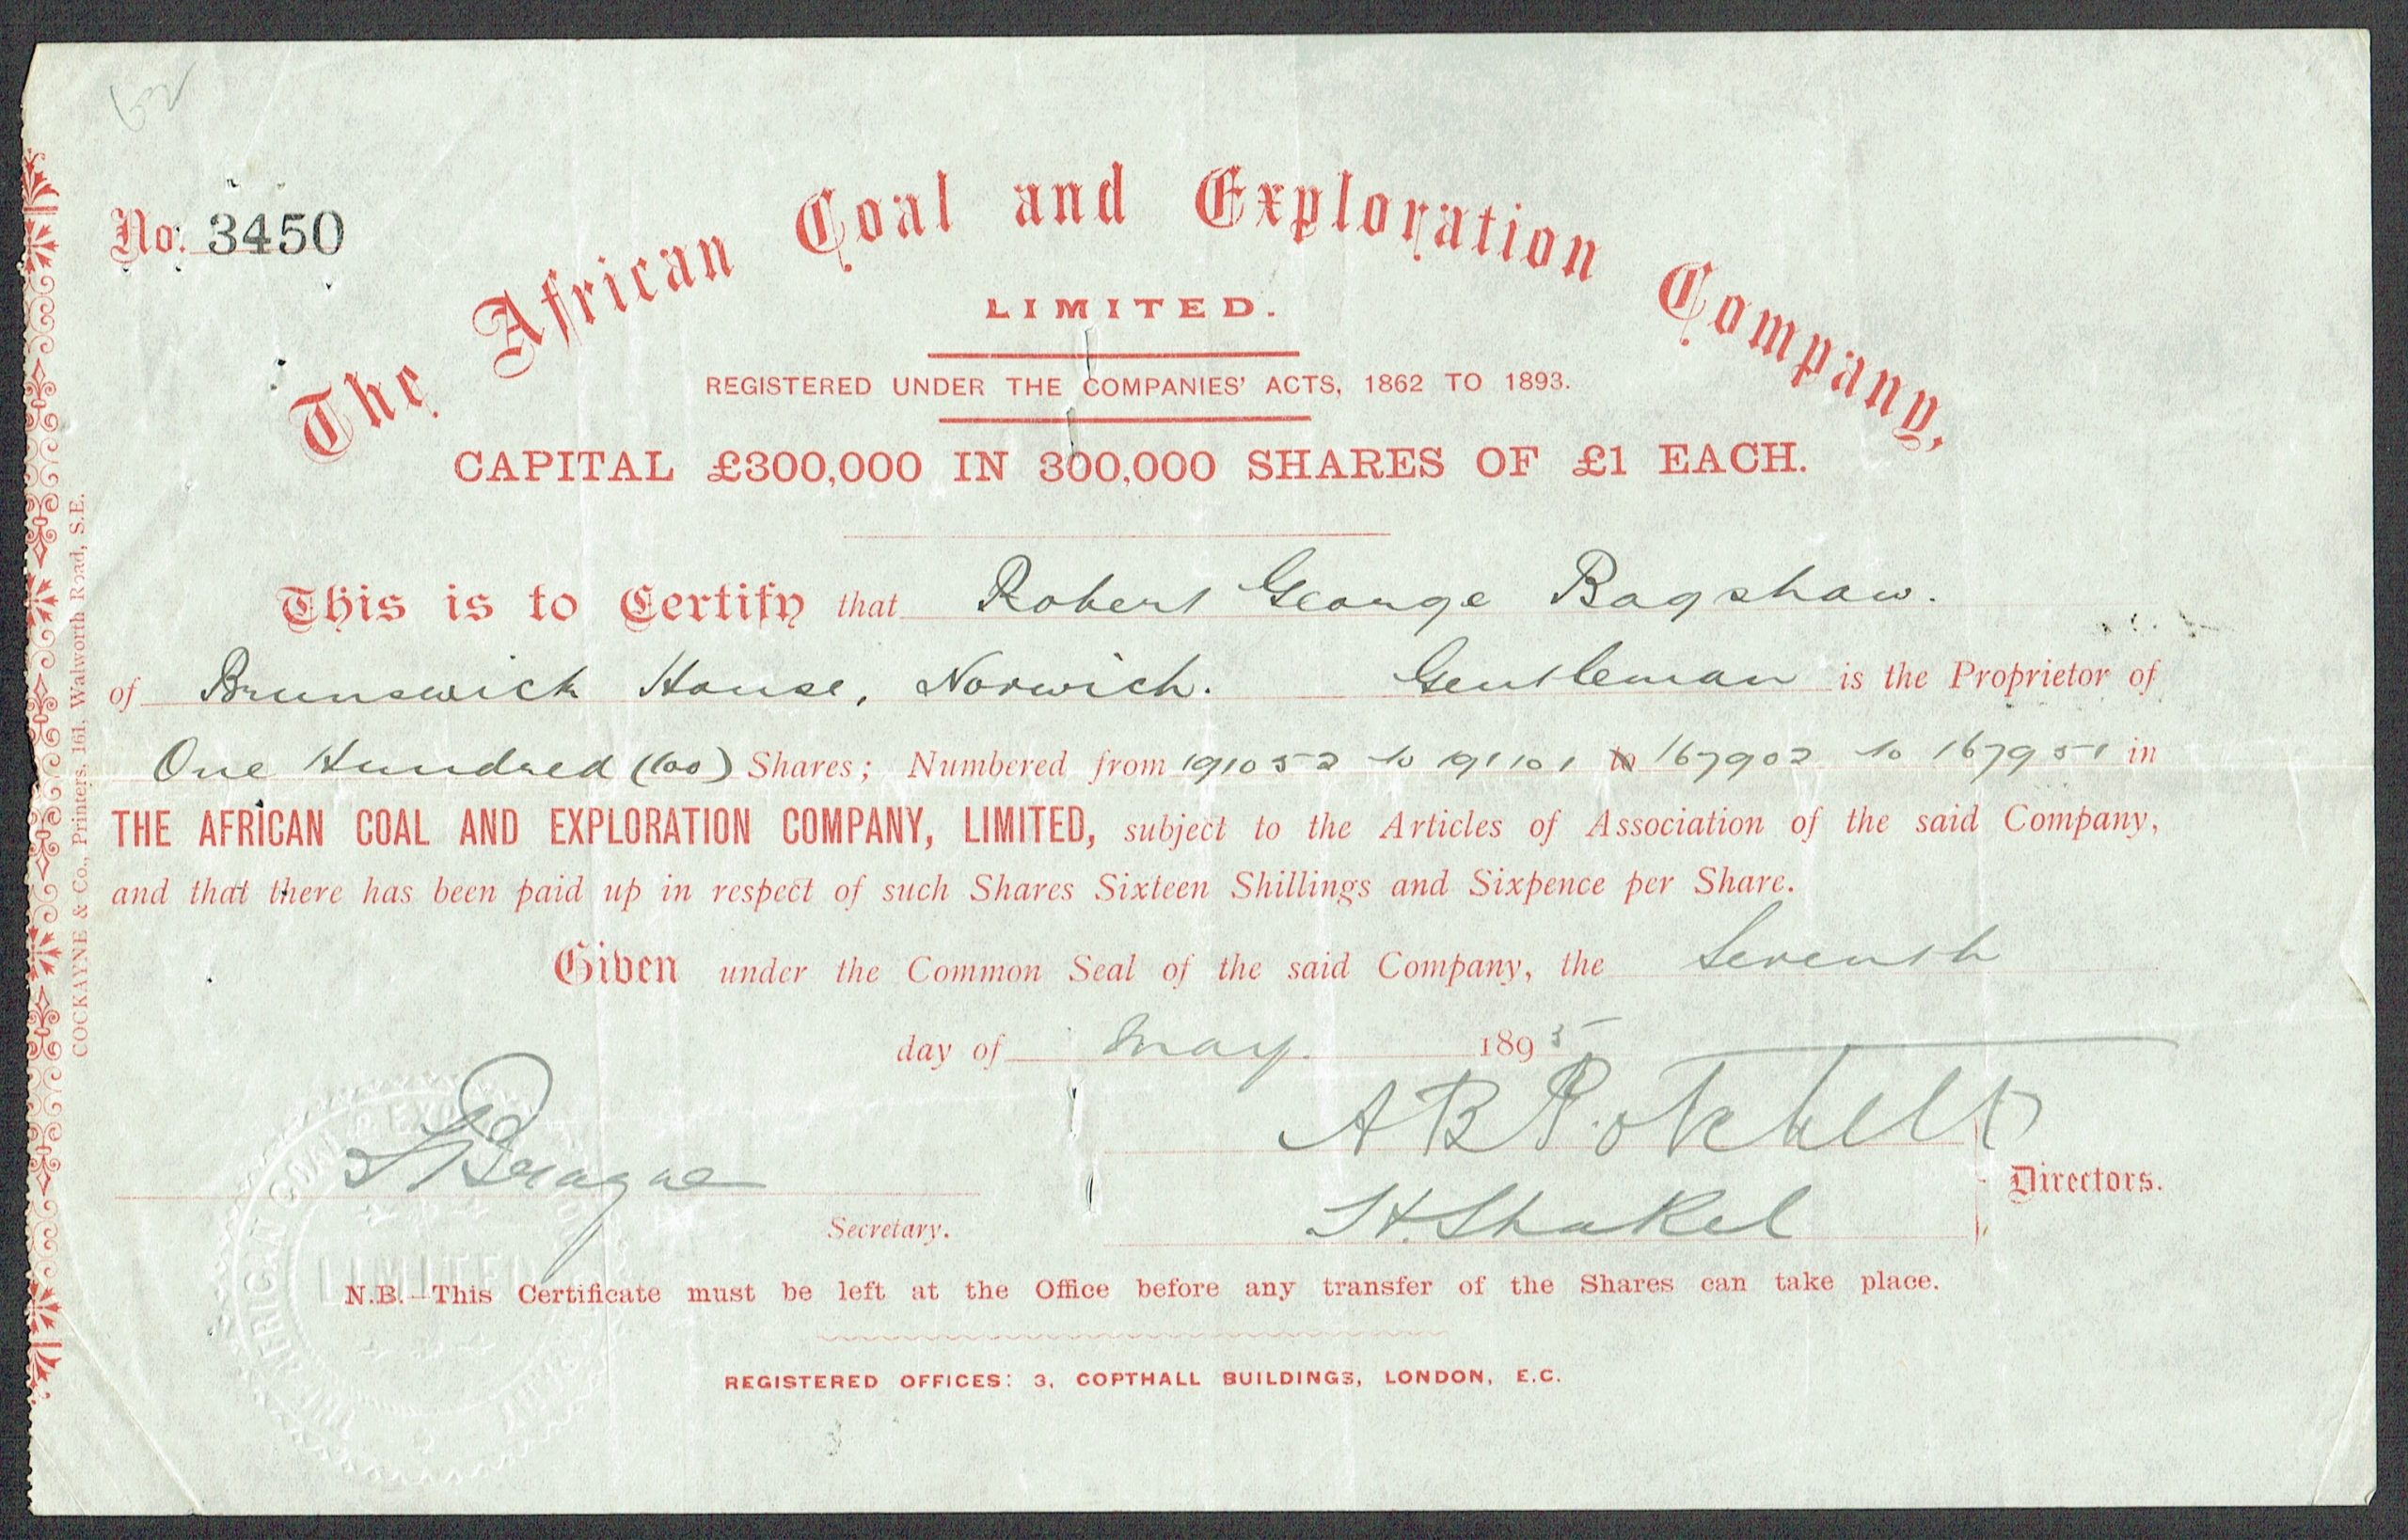 No. 3450
The African Coal and Exploration Company,
LIMITED.
REGISTERED UNDER THE COMPANIES' ACTS, 1862 TO 1893.
CAPITAL £300,000 IN 300,000 SHARES OF £1 EACH.
This is to Certify that Robert George Bagshaw.
of Brunswick House, Norwich. Gentleman is the Proprietor of
One Hundred (100) Shares; Numbered from 191052 to 191101 to 167902 to 167951 in
THE AFRICAN COAL AND EXPLORATION COMPANY, LIMITED, subject to the Articles of Association of the said Company,
and that there has been paid up in respect of such Shares Sixteen Shillings and Sixpence per Share.
Given under the Common Seal of the said Company, the Seventh
day of May 1895
Directors.
H. Shakel
Secretary.
N.B.—This Certificate must be left at the Office before any transfer of the Shares can take place.
REGISTERED OFFICES: 3, COPTHALL BUILDINGS, LONDON, E.C.
COCKAYNE & Co., Printers, 161, Walworth Road, S.E.
THE AFRICAN COAL & EXPLORATION COMPANY
LIMITED